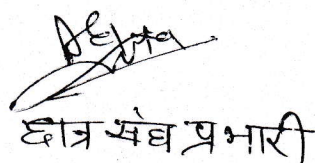 छात्र संघ प्रभारी